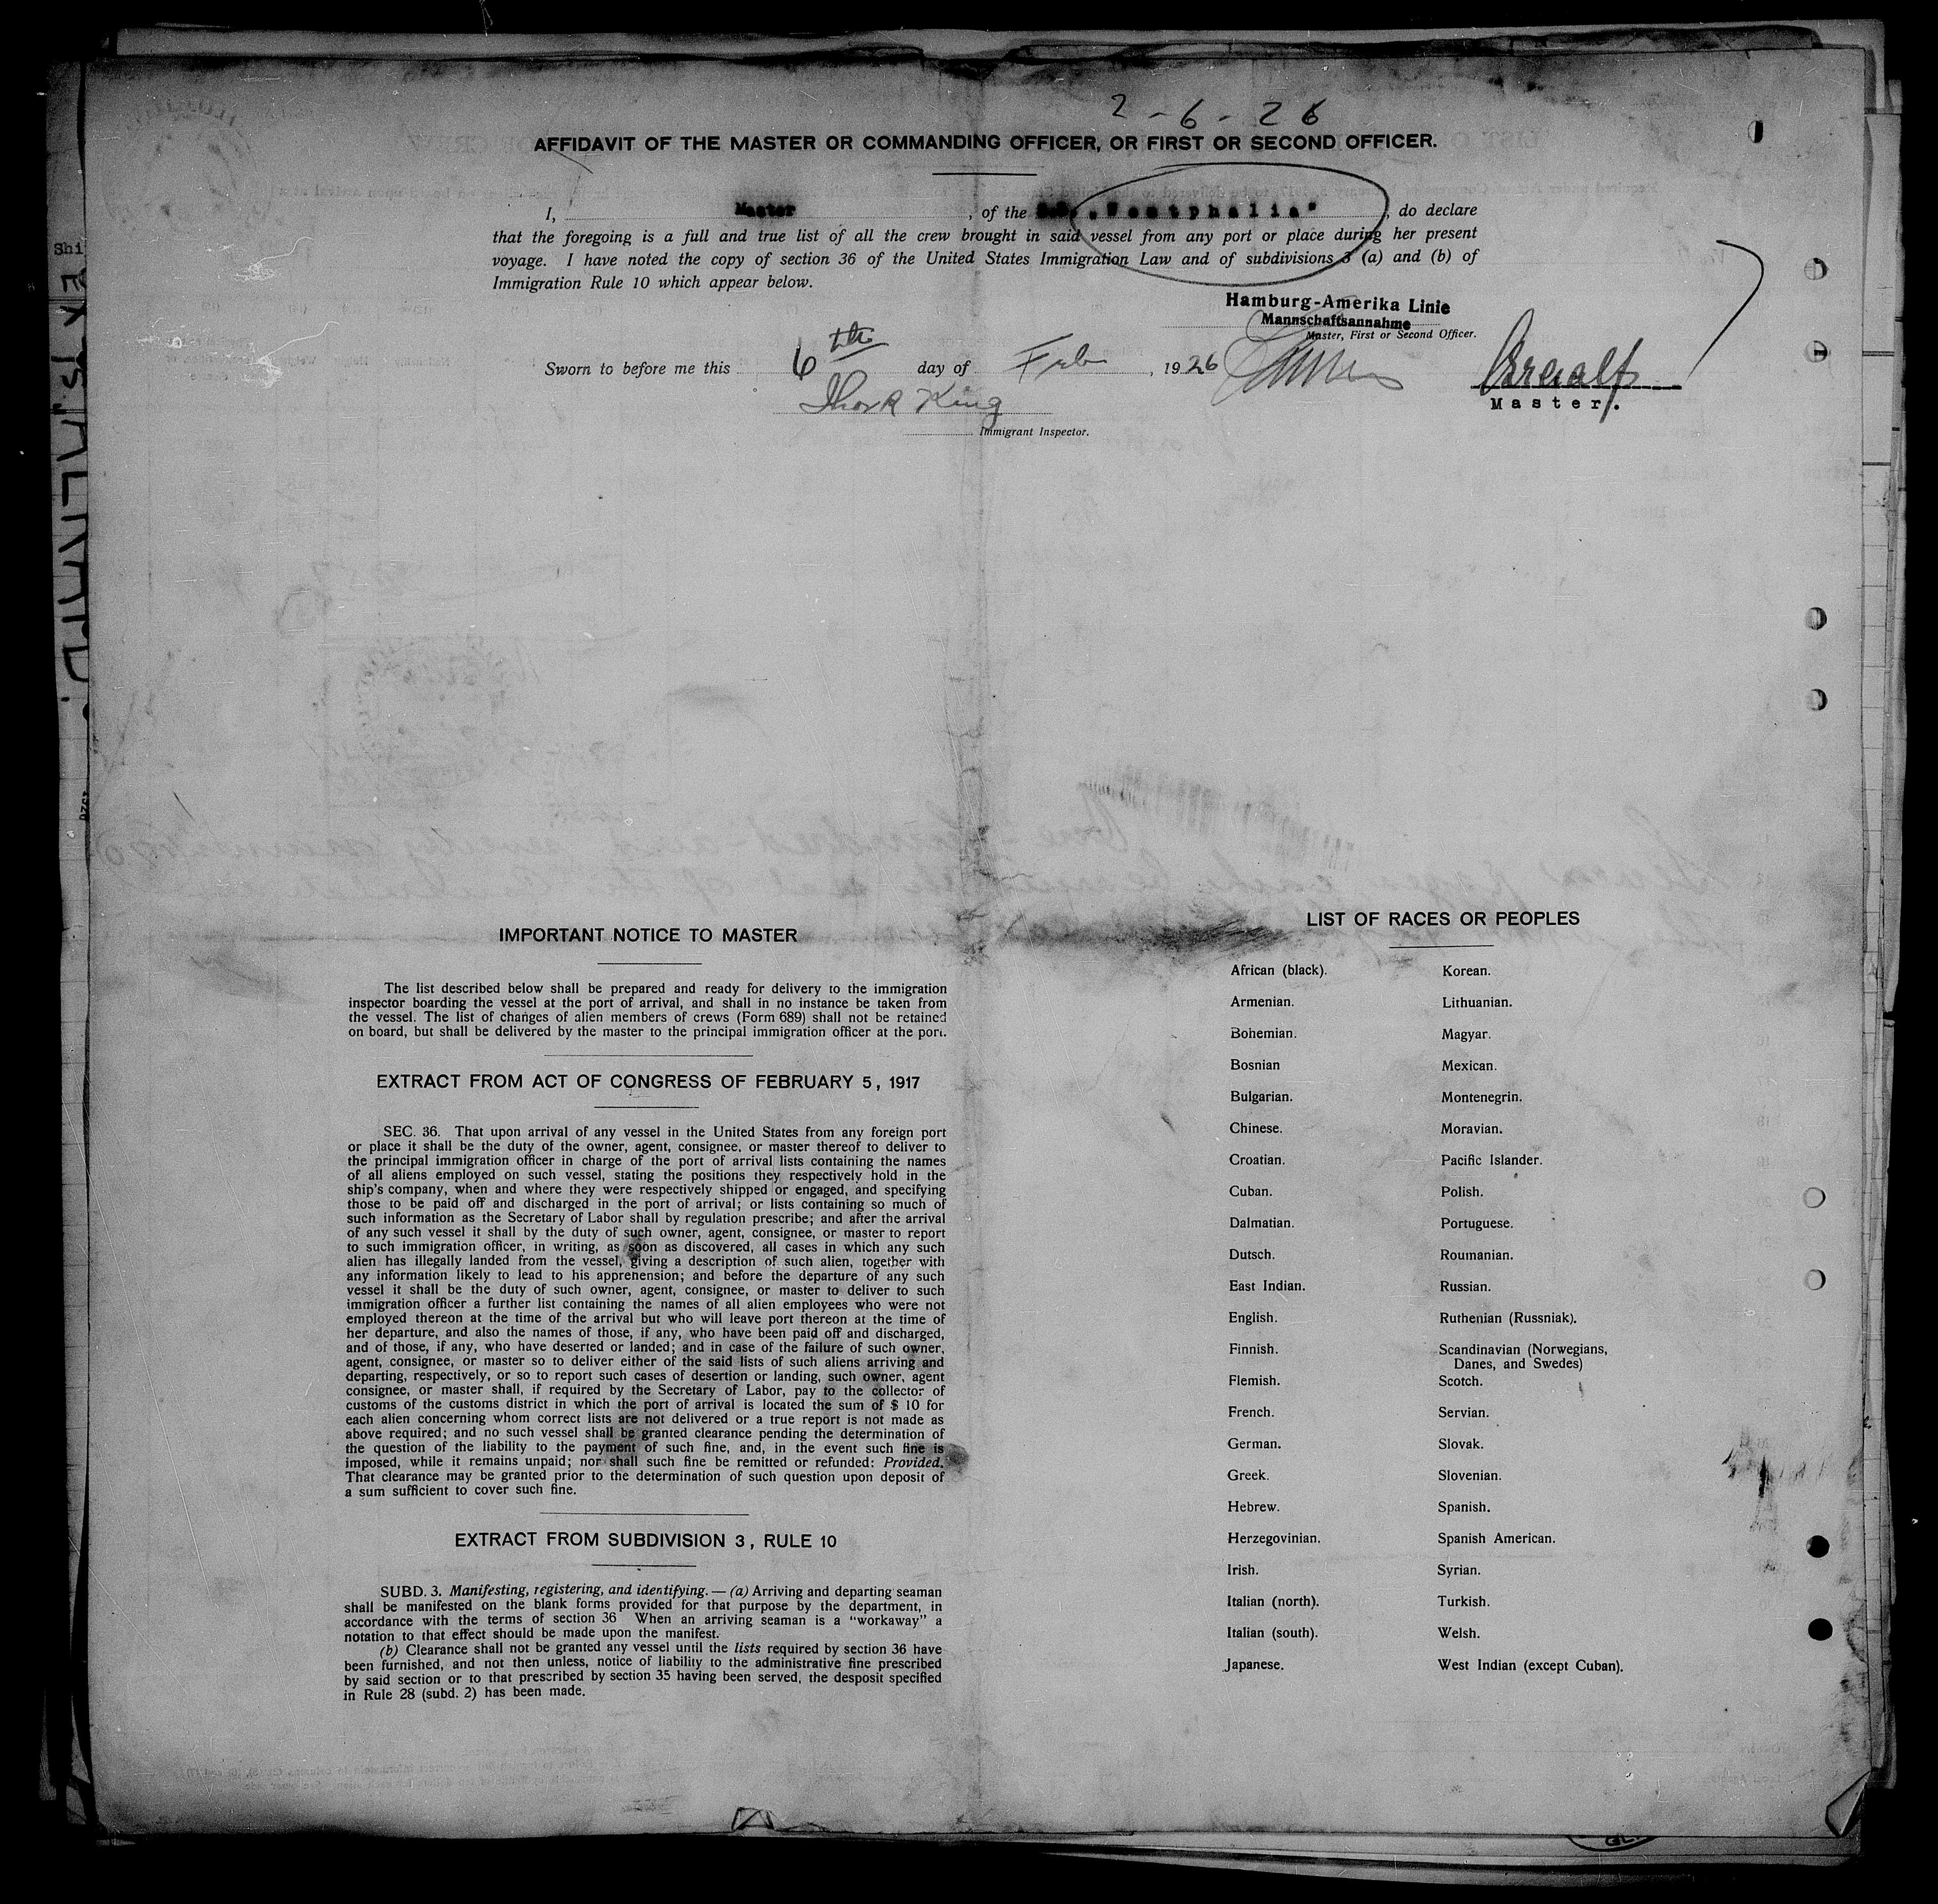 2-6-26
AFFIDAVIT OF THE MASTER OR COMMANDING OFFICER, OR FIRST OR SECOND OFFICER.
I, Master, of the S.S. „Westphalia", do declare
that the foregoing is a full and true list of all the crew brought in said vessel from any port or place during her present
voyage. I have noted the copy of section 36 of the United States Immigration Law and of subdivisions 3 (a) and (b) of
Immigration Rule 10 which appear below.
Hamburg-Amerika Linie
Mannschaftsannahme
Master, First or Second Officer.
Sworn to before me this 6th day of Feb, 1926
Master.
King
Immigrant Inspector.
IMPORTANT NOTICE TO MASTER
The list described below shall be prepared and ready for delivery to the immigration
inspector boarding the vessel at the port of arrival, and shall in no instance be taken from
the vessel. The list of changes of alien members of crews (Form 689) shall not be retained
on board, but shall be delivered by the master to the principal immigration officer at the port.
EXTRACT FROM ACT OF CONGRESS OF FEBRUARY 5, 1917
SEC. 36. That upon arrival of any vessel in the United States from any foreign port
or place it shall be the duty of the owner, agent, consignee, or master thereof to deliver to
the principal immigration officer in charge of the port of arrival lists containing the names
of all aliens employed on such vessel, stating the positions they respectively hold in the
ship's company, when and where they were respectively shipped or engaged, and specifying
those to be paid off and discharged in the port of arrival; or lists containing so much of
such information as the Secretary of Labor shall by regulation prescribe; and after the arrival
of any such vessel it shall by the duty of such owner, agent, consignee, or master to report
to such immigration officer, in writing, as soon as discovered, all cases in which any such
alien has illegally landed from the vessel, giving a description of such alien, together with
any information likely to lead to his apprenension; and before the departure of any such
vessel it shall be the duty of such owner, agent, consignee, or master to deliver to such
immigration officer a further list containing the names of all alien employees who were not
employed thereon at the time of the arrival but who will leave port thereon at the time of
her departure, and also the names of those, if any, who have been paid off and discharged,
and of those, if any, who have deserted or landed; and in case of the failure of such owner,
agent, consignee, or master so to deliver either of the said lists of such aliens arriving and
departing, respectively, or so to report such cases of desertion or landing, such owner, agent
consignee, or master shall, if required by the Secretary of Labor, pay to the collector of
customs of the customs district in which the port of arrival is located the sum of $ 10 for
each alien concerning whom correct lists are not delivered or a true report is not made as
above required; and no such vessel shall be granted clearance pending the determination of
the question of the liability to the payment of such fine, and, in the event such fine is
imposed, while it remains unpaid; nor shall such fine be remitted or refunded: Provided.
That clearance may be granted prior to the determination of such question upon deposit of
a sum sufficient to cover such fine.
EXTRACT FROM SUBDIVISION 3, RULE 10
SUBD. 3. Manifesting, registering, and identifying. — (a) Arriving and departing seaman
shall be manifested on the blank forms provided for that purpose by the department, in
accordance with the terms of section 36 When an arriving seaman is a "workaway" a
notation to that effect should be made upon the manifest.
(b) Clearance shall not be granted any vessel until the lists required by section 36 have
been furnished, and not then unless, notice of liability to the administrative fine prescribed
by said section or to that prescribed by section 35 having been served, the desposit specified
in Rule 28 (subd. 2) has been made.
LIST OF RACES OR PEOPLES
African (black).
Armenian.
Bohemian.
Bosnian
Bulgarian.
Chinese.
Croatian.
Cuban.
Dalmatian.
Dutsch.
East Indian.
English.
Finnish.
Flemish.
French.
German.
Greek.
Hebrew.
Herzegovinian.
Irish.
Italian (north).
Italian (south).
Japanese.
Korean.
Lithuanian.
Magyar.
Mexican.
Montenegrin.
Moravian.
Pacific Islander.
Polish.
Portuguese.
Roumanian.
Russian.
Ruthenian (Russniak).
Scandinavian (Norwegians,
Danes, and Swedes)
Scotch.
Servian.
Slovak.
Slovenian.
Spanish.
Spanish American.
Syrian.
Turkish.
Welsh.
West Indian (except Cuban).